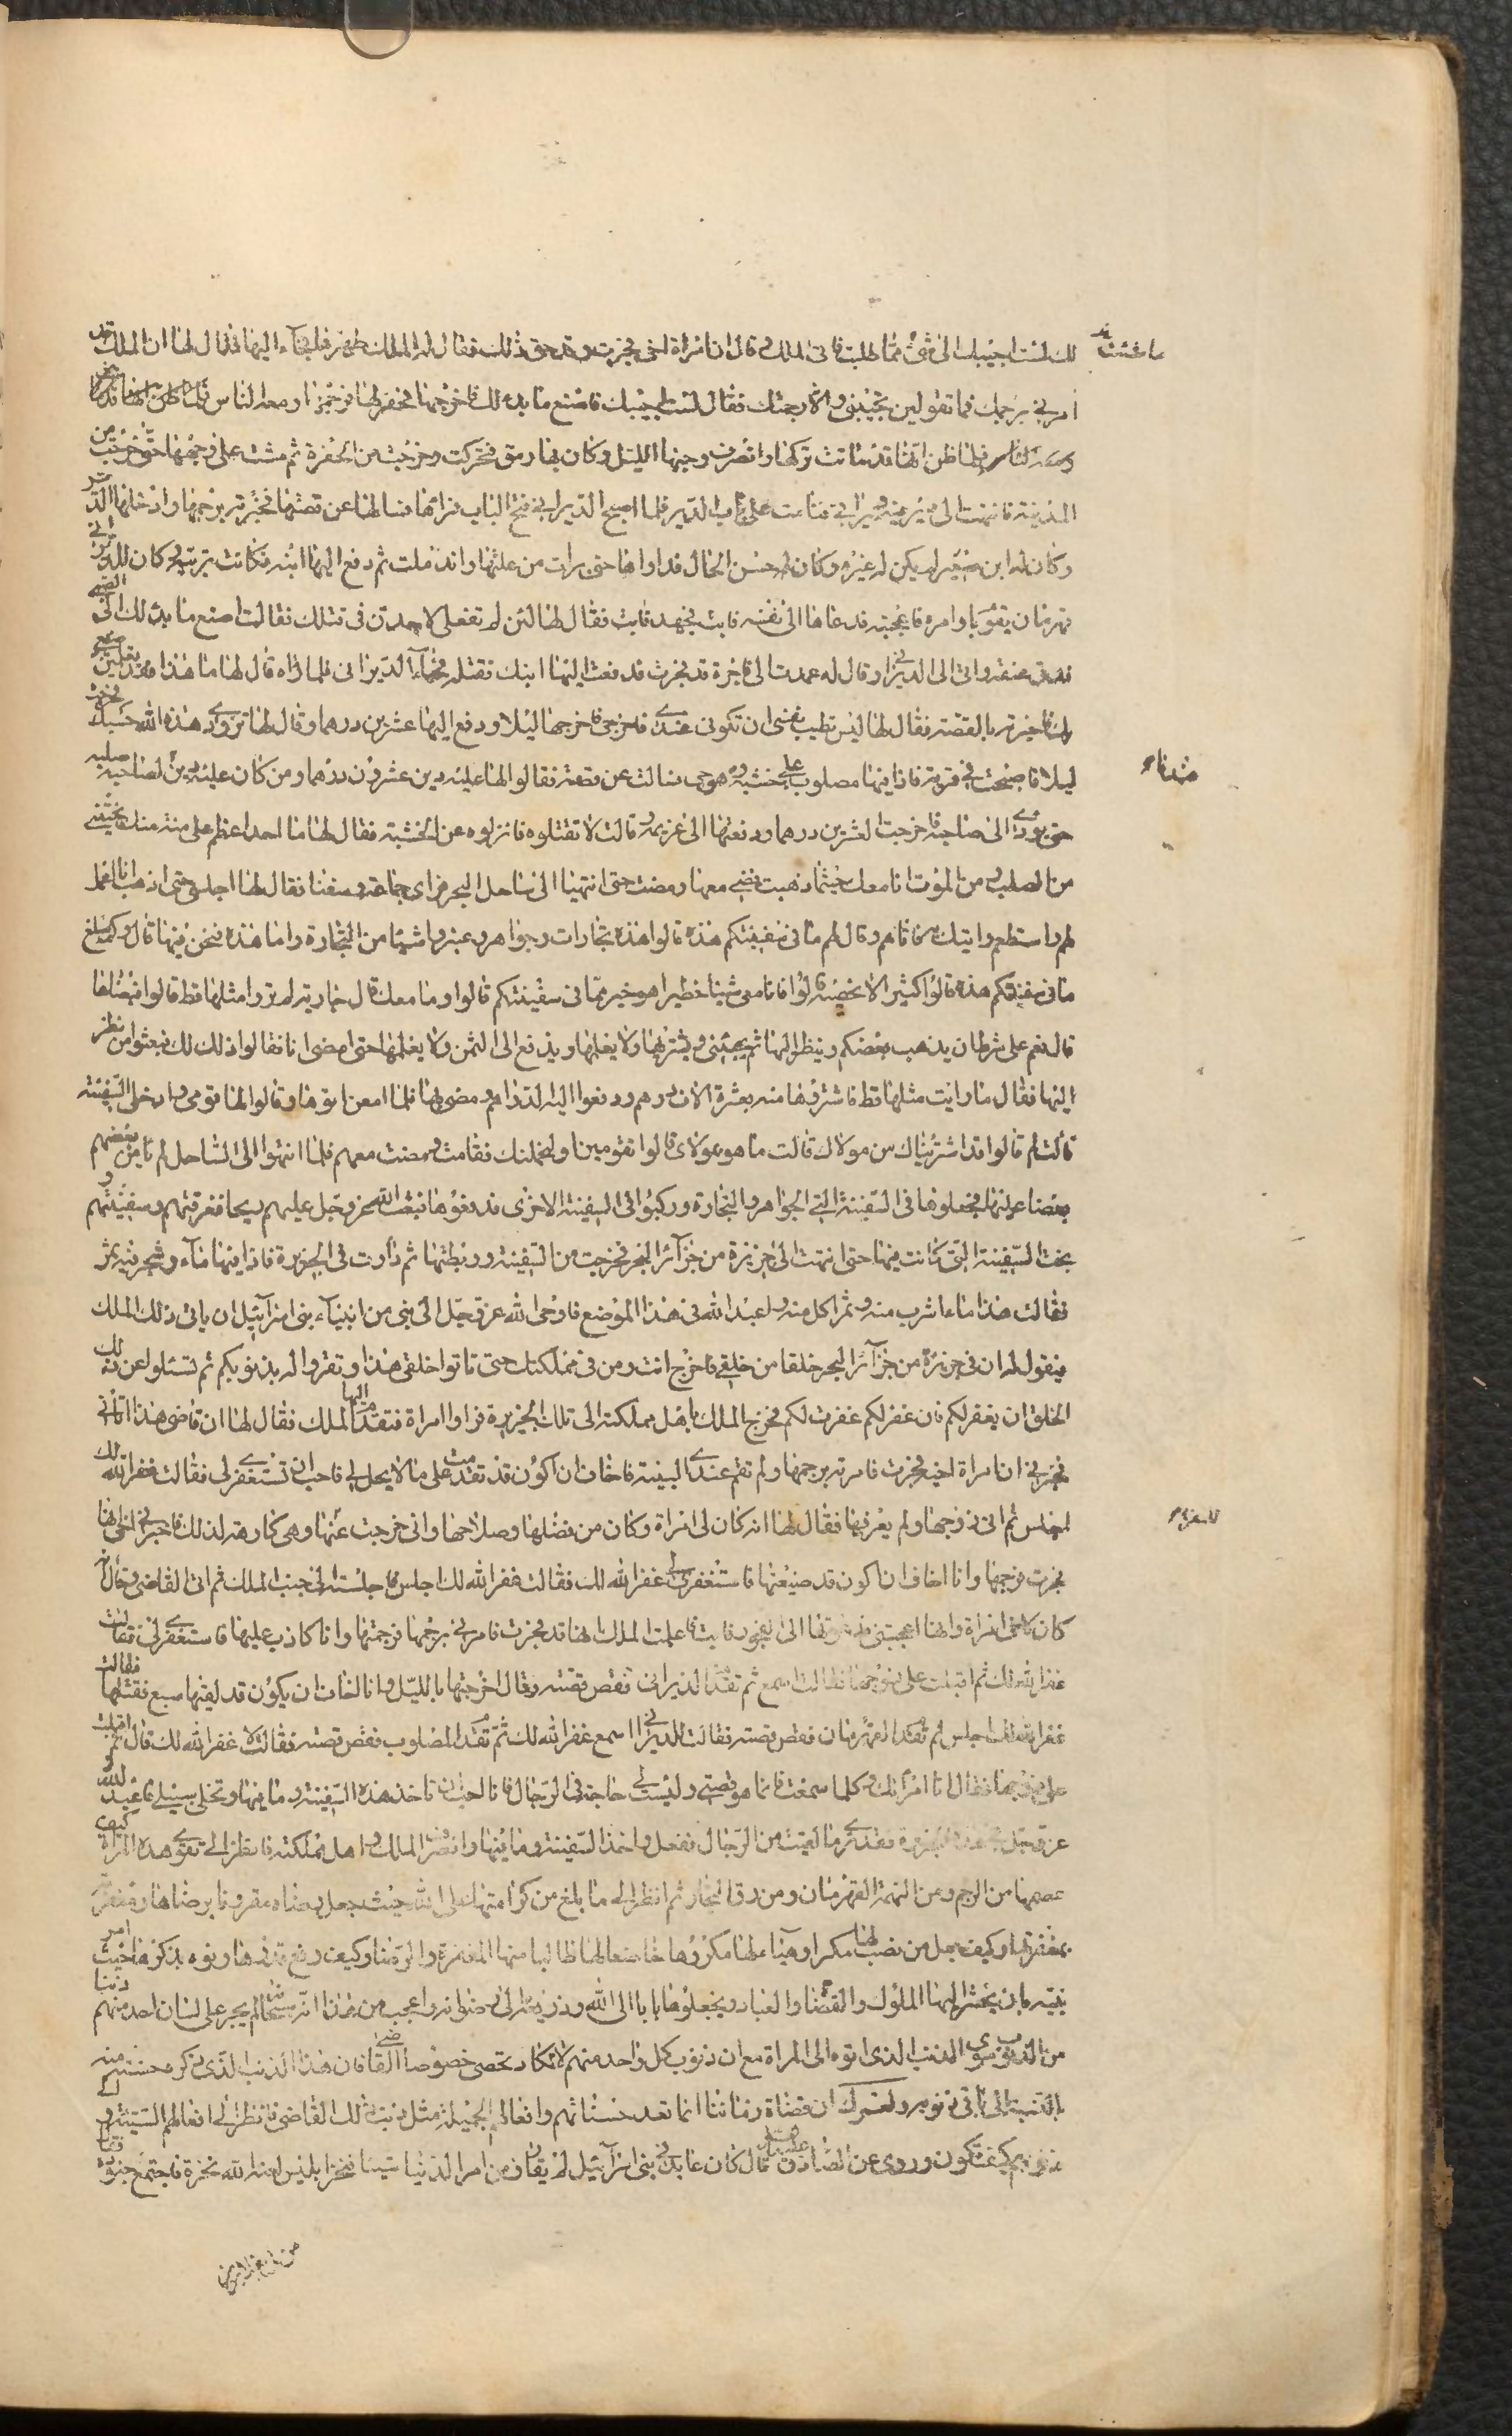 لك لست اجيبك الى شئ مما طلبت فاتى الملك و قال ان امراة اخى فجرت وقد حق ذلك فقال له الملك طهرها فجاء اليها فقال لها ان الملك قد
ما شئت
امرنى برجمك فما تقولين تجيبنى والا رجمتك فقال لست اجيبك فاصنع ما بدا لك فاخرجها فحفر لها فرجمها ومعه الناس فلما ظن انها قد
ومعه الناس فلما ظن انها قد ماتت تركها وانصرف وجنها الليل وكان بها رمق فتحركت وخرجت من الحفرة ثم مشت على وجهها حتى خرجت من
المدينة فانتهت الى دير فيه ديرانى فنامت على باب الدير فلما اصبح الديرانى فتح الباب فراها فسالها عن قصتها فخبرته فرحمها وادخلها الدير
وكان له ابن صغير لم يكن له غيره وكان حسن الحال فداواها حتى برات من علتها واندملت ثم دفع اليها ابنه فكانت تربيه وكان للديرانى
قهرمان يقوم بامره فاعجبته فدعاها الى نفسه فابت فجهد فابت فقال لها لئن لم تفعلى لاجهدن فى قتلك فقالت اصنع ما بدا لك الى الصبى
فدق عنقه واتى الى الديرانى وقال له عمدت الى فاجرة قد فجرت فدفعت اليها ابنك فقتلته فجاء الديرانى فلما راه قال لها ما هذا فقد تعلمين صنيعى
بك فاخبرته بالقصة فقال لها ليس تطيب نفسى ان تكونى عندى فاخرجى فاخرجها ليلا ودفع اليها عشرين درهما وقال لها تزودى هذه الله حسبك فخرجت
ليلا فاصبحت فى قرية فاذا فيها مصلوب على خشبة وهو حى فسالت عن قصته فقالوا لها عليه دين عشرون درهما ومن كان عليه دين لصاحبه صلب
حتى يودى الى صاحبه فاخرجت العشرين درهما ودفعتها الى غريمه و قالت لا تقتلوه فانزلوه عن الخشبة فقال لها ما احد اعظم على منة منك نجيتنى
من الصلب و من الموت فانا معك حيثما ذهبت فمضى معها ومضت حتى انتهيا الى ساحل البحر فراى جماعة وسفنا فقال لها اجلسى حتى اذهب انا اعمل
لهم واستطعم واتيك به فاتاهم وقال لهم ما فى سفينتكم هذه قالوا هذه تجارات وجواهر وعنبر واشياء من التجارة واما هذه فنحن فيها قال وكم يبلغ
ما فى سفينتكم هذه قالوا كثير لا نحصيه قال فان معى شيئا خطيرا هو خير مما فى سفينتكم قالوا وما معك قال جارية لم تروا مثلها قط قالوا فبعناها
قال نعم على شرط ان يذهب بعضكم وينظر اليها ثم يجيئنى ويشتريها ولا يعلمها ويدفع الى الثمن ولا يعلمها حتى امضى انا فقالوا ذلك لك فبعثوا من نظر
اليها فقال ما رايت مثلها قط فاشتروها منه بعشرة الاف درهم ودفعوا اليه الدراهم ومضى بها فلما امعن اتوها وقالوا لها قومى وادخلى السفينة
قالت لم قالوا قد اشتريناك من مولاك قالت ما هو بمولاى قالوا تقومين او لنحملنك فقامت ومضت معهم فلما انتهوا الى الساحل لم يامن بعضهم
بعضا عليها فجعلوها فى السفينة التى الجواهر والتجارة وركبوا فى السفينة الاخرى فدفعوها فبعث الله عز وجل عليهم ريحا فغرقتهم وسفينتهم و
نجت السفينة التى كانت فيها حتى انتهت الى جزيرة من جزائر البحر فخرجت من السفينة وربطتها ثم دارت فى الجزيرة فاذا فيها ماء وشجر فيه ثمر
فقالت هذا ماء اشرب منه و ثمر اكل منه و اعبد الله فى هذا الموضع فاوحى الله عز وجل الى نبى من انبياء بنى اسرائيل ان ياتى ذلك الملك
فيقول له ان فى جزيرة من جزائر البحر خلقا من خلقى فاخرج انت ومن فى مملكتك حتى تاتوا خلقى هذا وتقروا له بذنوبكم ثم تسئلوا من ذلك
الخلق ان يغفر لكم فان غفر لكم غفرت لكم فخرج الملك باهل مملكته الى تلك الجزيرة فراوا امراة فتقدم اليها الملك فقال لها ان قاضى هذا اتانى
فخبرنى ان امراة اخيه فجرت فامرته برجمها ولم تقم عندى البينة فاخاف ان اكون قد تقدمت على ما لا يحل لى فاحب ان تستغفرى لى فقالت غفر الله لك
اجلس ثم اتى زوجها ولم يعرفها فقال لها انه كان لى امراة وكان من فضلها وصلاحها وانى خرجت عنها وهى كارهة لذلك فاخبرنى اخى انها
فجرت فرجمها وانا اخاف ان اكون قد ضيعتها فاستغفرى لى غفر الله لك فقالت غفر الله لك اجلس فاجلسته الى جنب الملك ثم اتى القاضى وقال انه
كان لاخى امراة وانها اعجبتنى فدعوتها الى الفجور فابت فاعلمت الملك انها قد فجرت فامرنى برجمها فرجمتها وانا كاذب عليها فاستغفرى لى فقالت
غفر الله لك ثم اقبلت على زوجها فقالت اسمع ثم تقدم الديرانى فقص قصته وقال اخرجتها بالليل وانا اخاف ان يكون قد لقيها سبع فقتلها فقالت
غفر الله لك اجلس ثم تقدم القهرمان فقص قصته فقالت للديرانى اسمع غفر الله لك ثم تقدم المصلوب فقص قصته فقالت لا غفر الله لك قال ثم اقبلت
على زوجها فقال انا امراتك و كلما سمعت فانما هو قصتى وليست لى حاجة فى الرجال فانا احب ان تاخذ هذه السفينة و ما فيها وتخلى سبيلى فاعبد الله
عز وجل فى هذه الجزيرة فقد ترى ما لقيت من الرجال ففعل واخذ السفينة وما فيها وانصرف الملك و اهل مملكته فانظر الى تقوى هذه المراة كيف
عصمها من الرجم ومن التهمة القهرمان ومن رق التجار ثم انظر الى ما بلغ من كرامتها على الله حيث جعل رضاه مقرونا برضاها ومغفرته
بمغفرتها وكيف جعل من نصب لها مكرا وهياء لها مكروها خاضعا لها طالبا منها المغفرة والرضا وكيف رفع قدرها ونوه بذكرها حيث امر
نبيه بان يحشر اليها الملوك والقضاة والعباد ويجعلوها بابا الى الله وذريعة الى رضوانه واعجب من هذا انه سبحانه لم يجر على لسان احد منهم ذنبا
من الذنوب سوى الذنب الذى اتوه الى المراة مع ان ذنوب كل واحد منهم لا تكاد تحصى خصوصا القاضى فان هذا الذنب الذى ذكره حسنة منه
بالنسبة الى باقى ذنوبه ولعمرك ان قضاة زماننا انما تعد حسناتهم وافعالهم الجميلة مثل ذنب ذلك القاضى فانظر الى افعالهم السيئة و
ذنوبهم كيف تكون وروى عن الصادق عليه السلام قال كان عابد فى بنى اسرائيل لم يقارف من امر الدنيا شيئا فنخر ابليس لعنه الله نخرة فاجتمع جنوده فقال